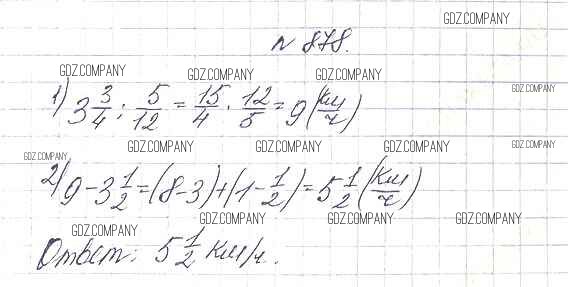 GDZ.COMPANY
N 878.
GDZ.COMPANY GDZ.COMPANY GDZ.COMPANY
GDZ.COMPANY
1) 3 3/4 : 5/12 = 15/4 · 12/5 = 9 (км/ч)
GDZ.COMPANY GDZ.COMPANY GDZ.COMPANY GDZ.COMPANY GDZ.COMPANY
2) 9 - 3 1/2 = (8 - 3) + (1 - 1/2) = 5 1/2 (км/ч)
GDZ.COMPANY GDZ.COMPANY GDZ.COMPANY GDZ.COMPANY
Ответ: 5 1/2 км/ч.